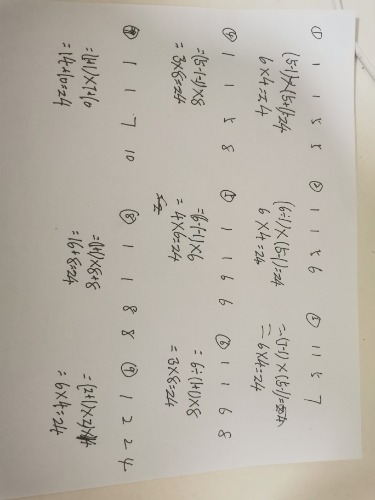 ① 1 1 5 5 ② 1 1 5 6 ③ 1 1 5 7
(5-1)×(5+1)=24 (6÷1)×(5-1)=24 =(7-1)×(5-1)=24
6×4=24 6×4=24 =6×4=24
④ 1 1 5 8 ⑤ 1 1 6 6 ⑥ 1 1 6 8
=(5-1-1)×8 =(6-1-1)×6 =6÷(1+1)×8
=3×8=24 =4×6=24 =3×8=24
1 1 7 10 ⑧ 1 1 8 8 ⑨ 1 2 2 4
=(1+1)×7+10 =(1+1)×8+8 =(2+1)×2×4
=14+10=24 =16+8=24 =6×4=24